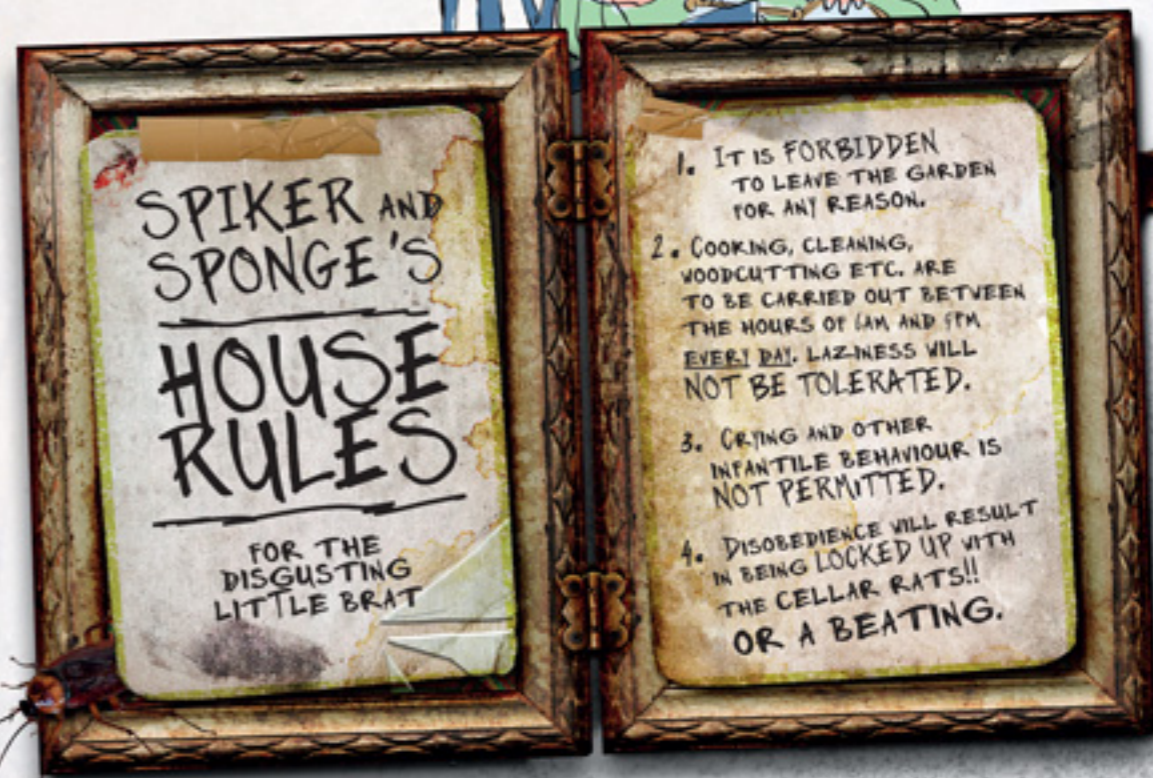 SPIKER AND
SPONGE'S
HOUSE
RULES
FOR THE
DISGUSTING
LITTLE BRAT
1. IT IS FORBIDDEN
TO LEAVE THE GARDEN
FOR ANY REASON.
2. COOKING, CLEANING,
WOODCUTTING ETC. ARE
TO BE CARRIED OUT BETWEEN
THE HOURS OF 6AM AND 9PM
EVERY DAY. LAZINESS WILL
NOT BE TOLERATED.
3. CRYING AND OTHER
INFANTILE BEHAVIOUR IS
NOT PERMITTED.
4. DISOBEDIENCE WILL RESULT
IN BEING LOCKED UP WITH
THE CELLAR RATS!!
OR A BEATING.